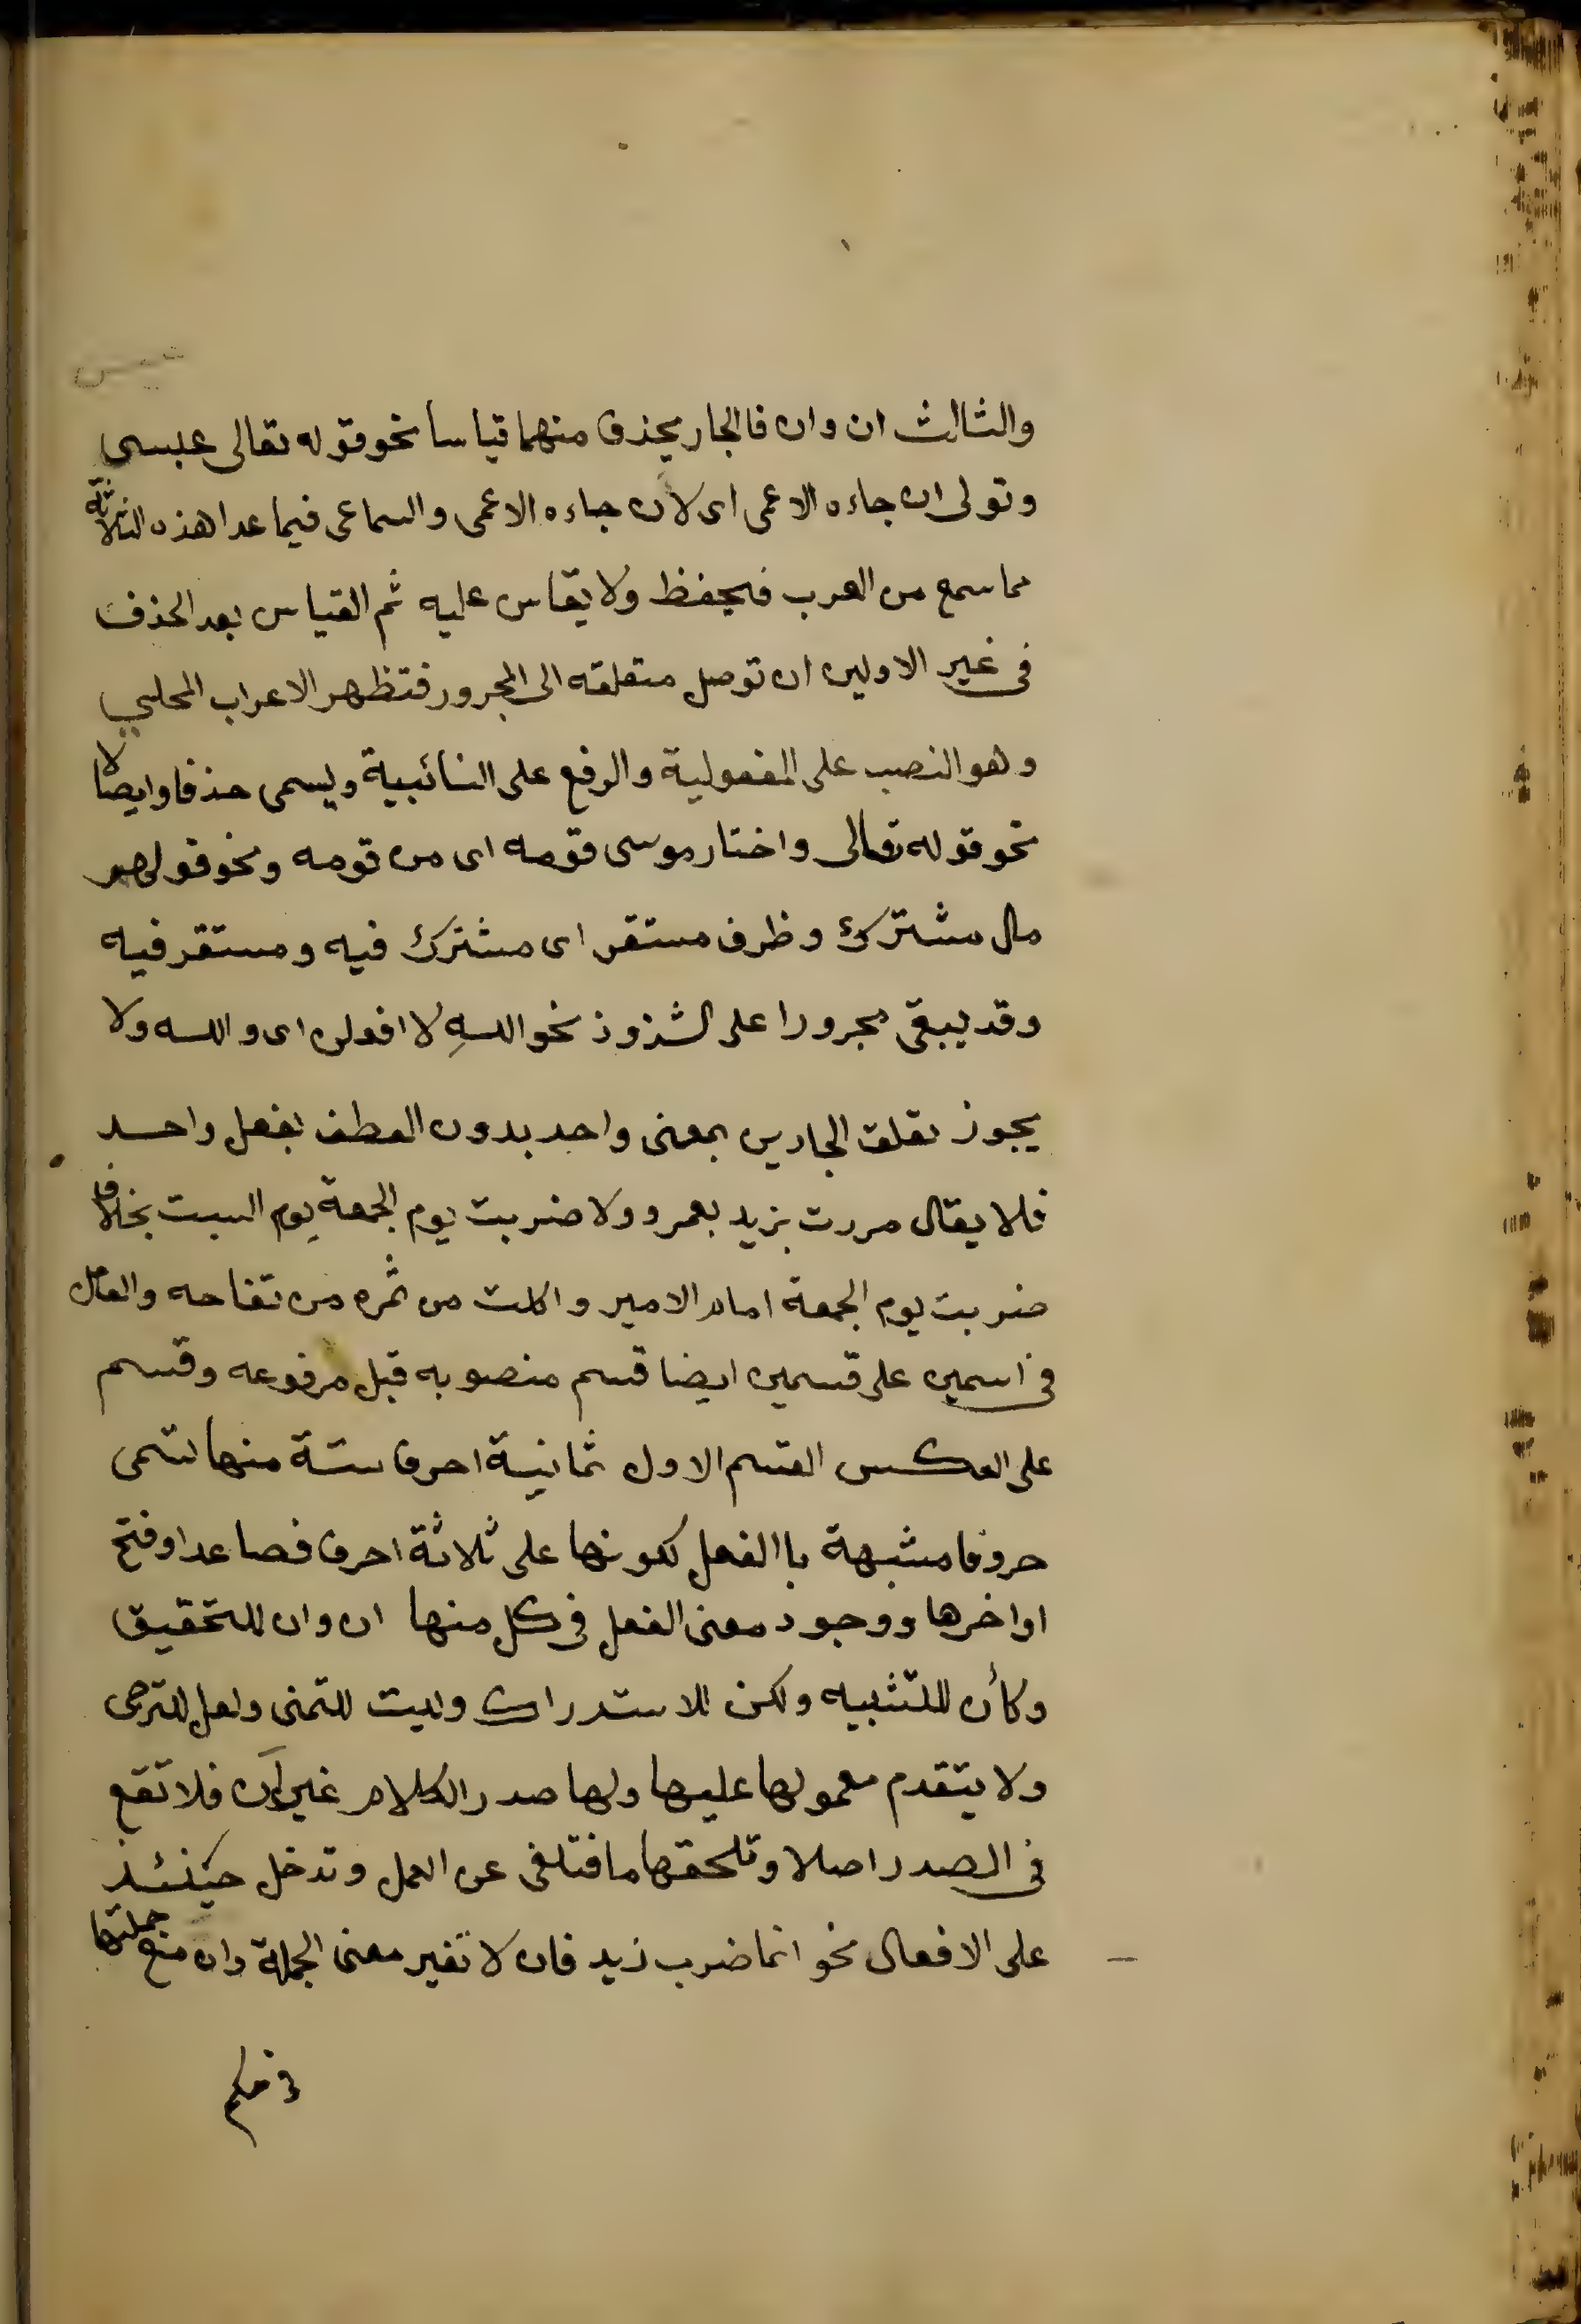 والثالث ان وان فالجار يحذف منهما قياسا نحو قوله تعالى عبسى
وتولى ان جاءه الاعمى اى لأن جاءه الاعمى والسماعى فيما عدا هذه الثلاثة
مما سمع من العرب فيحفظ ولا يقاس عليه ثم القياس بعد الحذف
فى غير الاولين ان توصل متعلقه الى المجرور فتظهر الاعراب المحلي
وهو النصب على المفعولية والرفع على النائبية ويسمى حذفا وايصالا
نحو قوله تعالى واختار موسى قومه اى من قومه ونحو قولهم
مال مشترك وظرف مستقر اى مشترك فيه ومستقر فيه
وقد يبقى مجرورا على الشذوذ نحو اللهِ لا افعلن اى والله ولا
يجوز تعلق الجارين بمعنى واحد بدون العطف بفعل واحد
فلا يقال مررت بزيد بعمرو ولا ضربت يوم الجمعة يوم السبت بخلاف
ضربت يوم الجمعة امام الامير واكلت من ثمره من تفاحه والعامل
فى اسمين على قسمين ايضا قسم منصوبه قبل مرفوعه وقسم
على العكس القسم الاول ثمانية احرف ستة منها تسمى
حروفا مشبهة باالفعل لكونها على ثلاثة احرف فصاعدا وفتح
اواخرها ووجود معنى الفعل فى كل منها ان وان للتحقيق
وكأن للتشبيه ولكن للاستدراك وليت للتمنى ولعل للترجى
ولا يتقدم معمولها عليها ولها صدر الكلام غير أن فلا تقع
فى الصدر اصلا وتلحقها ما فتلغى عن العمل وتدخل حينئذ
على الافعال نحو انما ضرب زيد فان لا تغير معنى الجملة وان مع جملتها
فى حكم